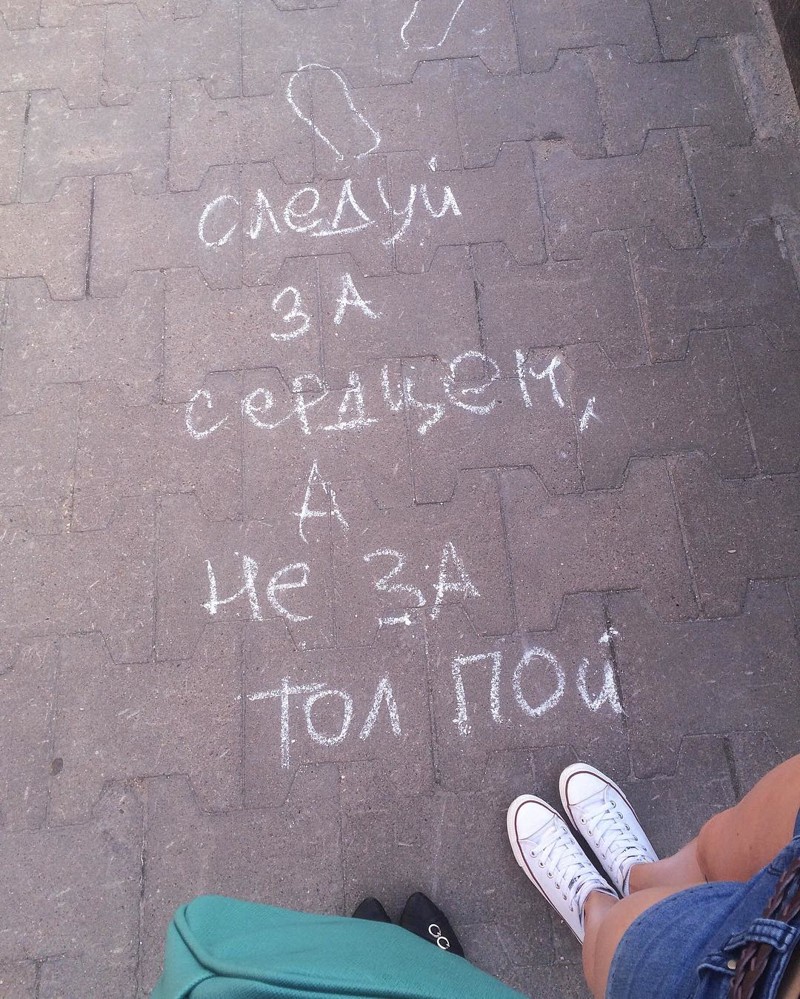 следуй
за
сердцем,
а
не за
тол пой